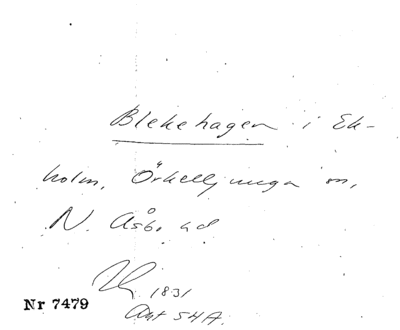 Blekehagen i Ek-
holm, Örkelljunga sn,
N. Åsbo hd
1831
Akt SHA.
Nr 7479